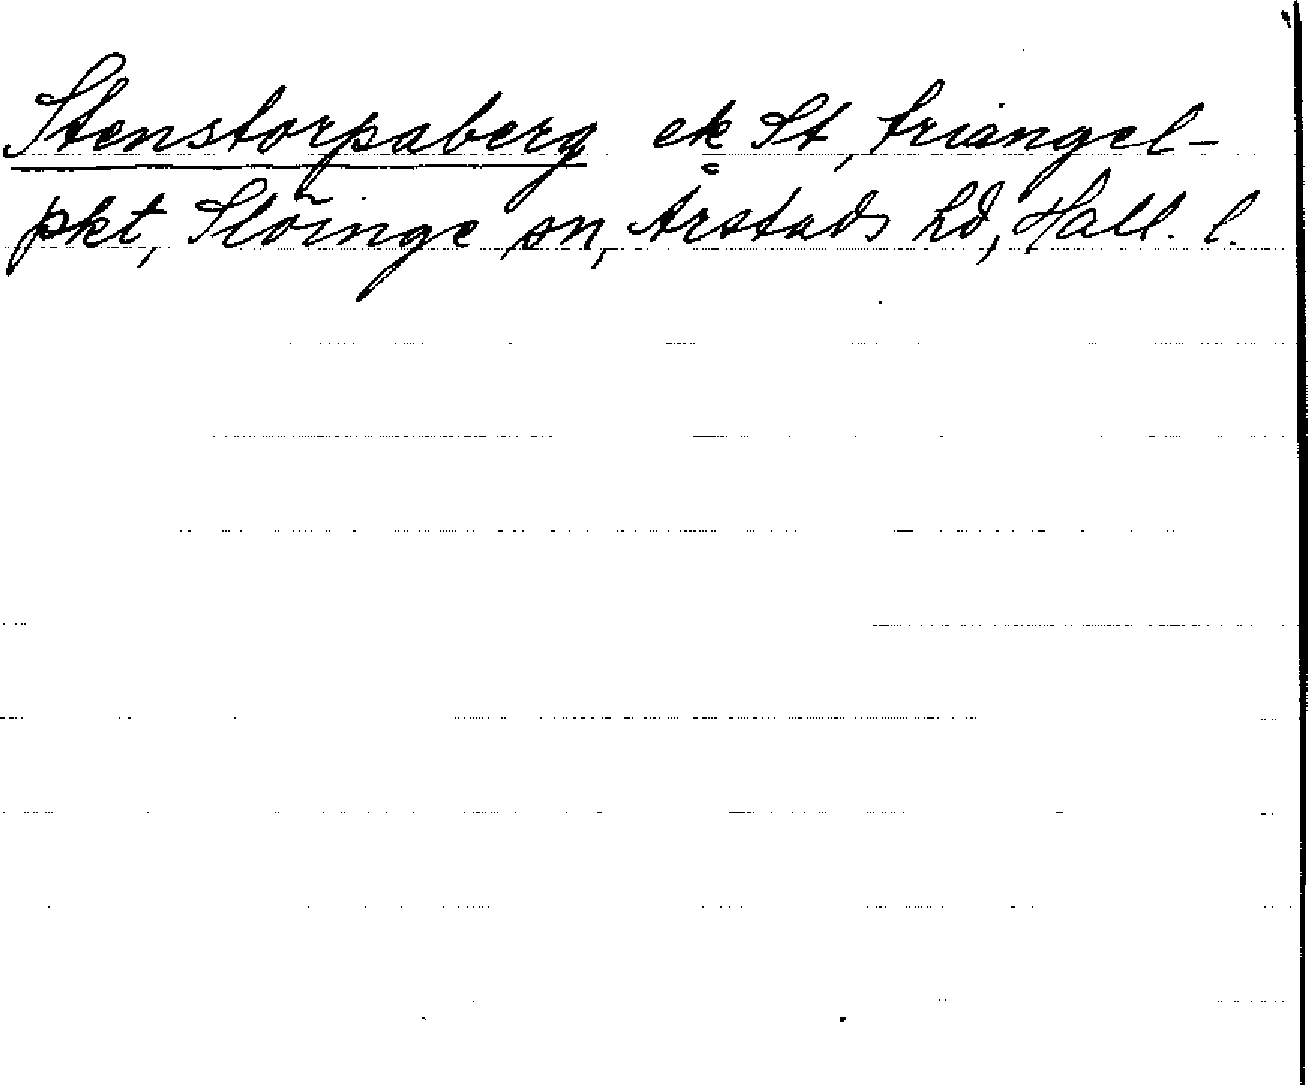 Stenstorpaberg ek St, triangel-
pkt, Slöinge sn, Årstads hd, Hall. l.